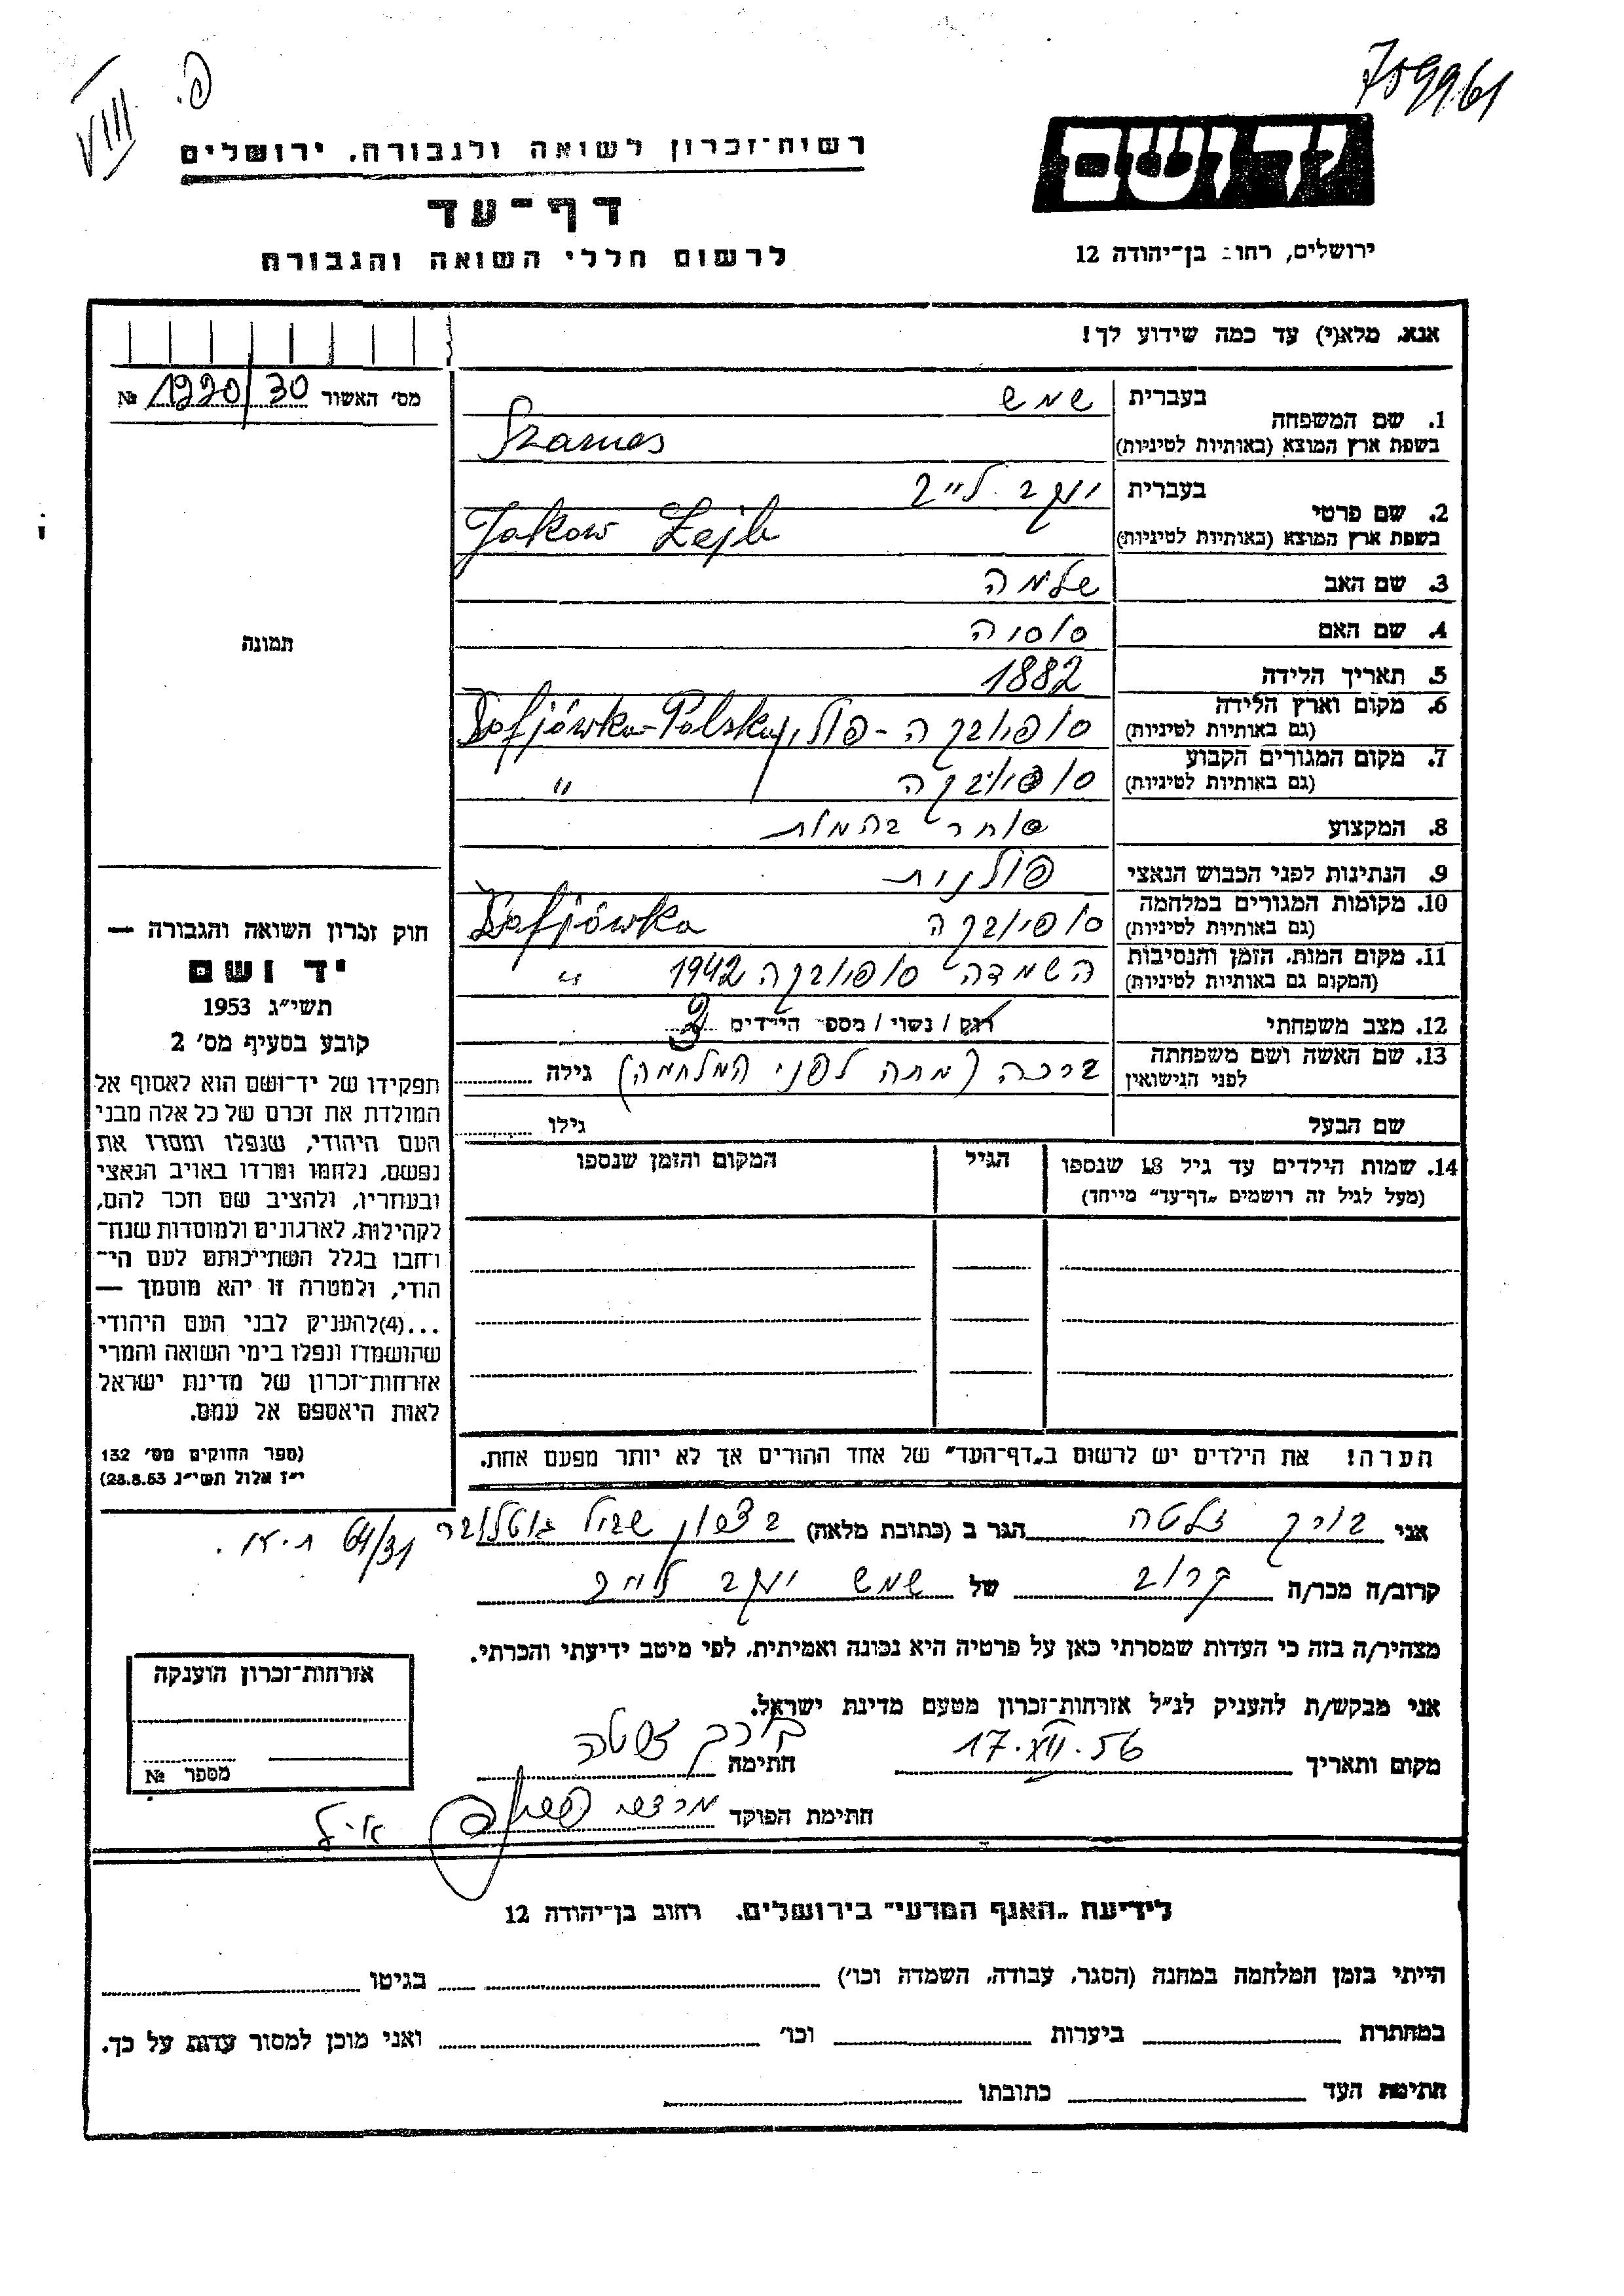 759961
פ.
VIII
רשות־זכרון לשואה ולגבורה. ירושלים
יד ושם
דף־עד
לרשום חללי השואה והגבורה
ירושלים, רחוב בן־יהודה 12
אנא, מלא(י) עד כמה שידוע לך!
מס' האשור 1220/30 №
תמונה
1. שם המשפחה
בעברית שמש
בשפת ארץ המוצא (באותיות לטיניות) Szames
2. שם פרטי
בעברית יעקב לייב
בשפת ארץ המוצא (באותיות לטיניות) Jakow Lejb
3. שם האב שלמה
4. שם האם סוסיה
5. תאריך הלידה 1882
6. מקום וארץ הלידה סופיובקה - פול, Zofjówka-Polska
(גם באותיות לטיניות)
7. מקום המגורים הקבוע סופיובקה "
(גם באותיות לטיניות)
8. המקצוע סוחר בהמות
9. הנתינות לפני הכבוש הנאצי פולנית
10. מקומות המגורים במלחמה סופיובקה Zofjówka
(גם באותיות לטיניות)
11. מקום המות, הזמן והנסיבות השמדה סופיובקה 1942 "
(המקום גם באותיות לטיניות)
12. מצב משפחתי רוק / נשוי / מספר הילדים 3
13. שם האשה ושם משפחתה ברכה (מתה לפני המלחמה) גילה
לפני הנישואין
שם הבעל גילו
14. שמות הילדים עד גיל 18 שנספו הגיל המקום והזמן שנספו
(מעל לגיל זה רושמים „דף־עד” מייחד)
הערה! את הילדים יש לרשום ב„דף־העד” של אחד ההורים אך לא יותר מפעם אחת.
חוק זכרון השואה והגבורה —
יד ושם
תשי"ג 1953
קובע בסעיף מס' 2
תפקידו של יד־ושם הוא לאסוף אל
המולדת את זכרם של כל אלה מבני
העם היהודי, שנפלו ומסרו את
נפשם, נלחמו ומרדו באויב הנאצי
ובעוזריו, ולהציב שם וזכר להם,
לקהילות, לארגונים ולמוסדות שנח־
רבו בגלל השתייכותם לעם הי־
הודי, ולמטרה זו יהא מוסמך —
...(4) להעניק לבני העם היהודי
שהושמדו ונפלו בימי השואה והמרי
אזרחות־זכרון של מדינת ישראל
לאות היאספם אל עמם.
(ספר החוקים מס' 132
י"ז אלול תשי"ג 28.8.53)
אני בורק זלטה הגר ב (כתובת מלאה) בצפון שביל 64/31 ת.א.
קרוב/ה מכר/ה קרוב של שמש יעקב לייב
מצהיר/ה בזה כי העדות שמסרתי כאן על פרטיה היא נכונה ואמיתית, לפי מיטב ידיעתי והכרתי.
אני מבקש/ת להעניק לנ"ל אזרחות־זכרון מטעם מדינת ישראל.
מקום ותאריך 17.XII.56 חתימה בורק זלטה
חתימת הפוקד
אזרחות־זכרון הוענקה
מספר №
לידיעת „האגף המדעי” בירושלים. רחוב בן־יהודה 12
הייתי בזמן המלחמה במחנה (הסגר, עבודה, השמדה וכו') בגיטו
במחתרת ביערות וכו' ואני מוכן למסור עדות על כך.
חתימת העד כתובתו